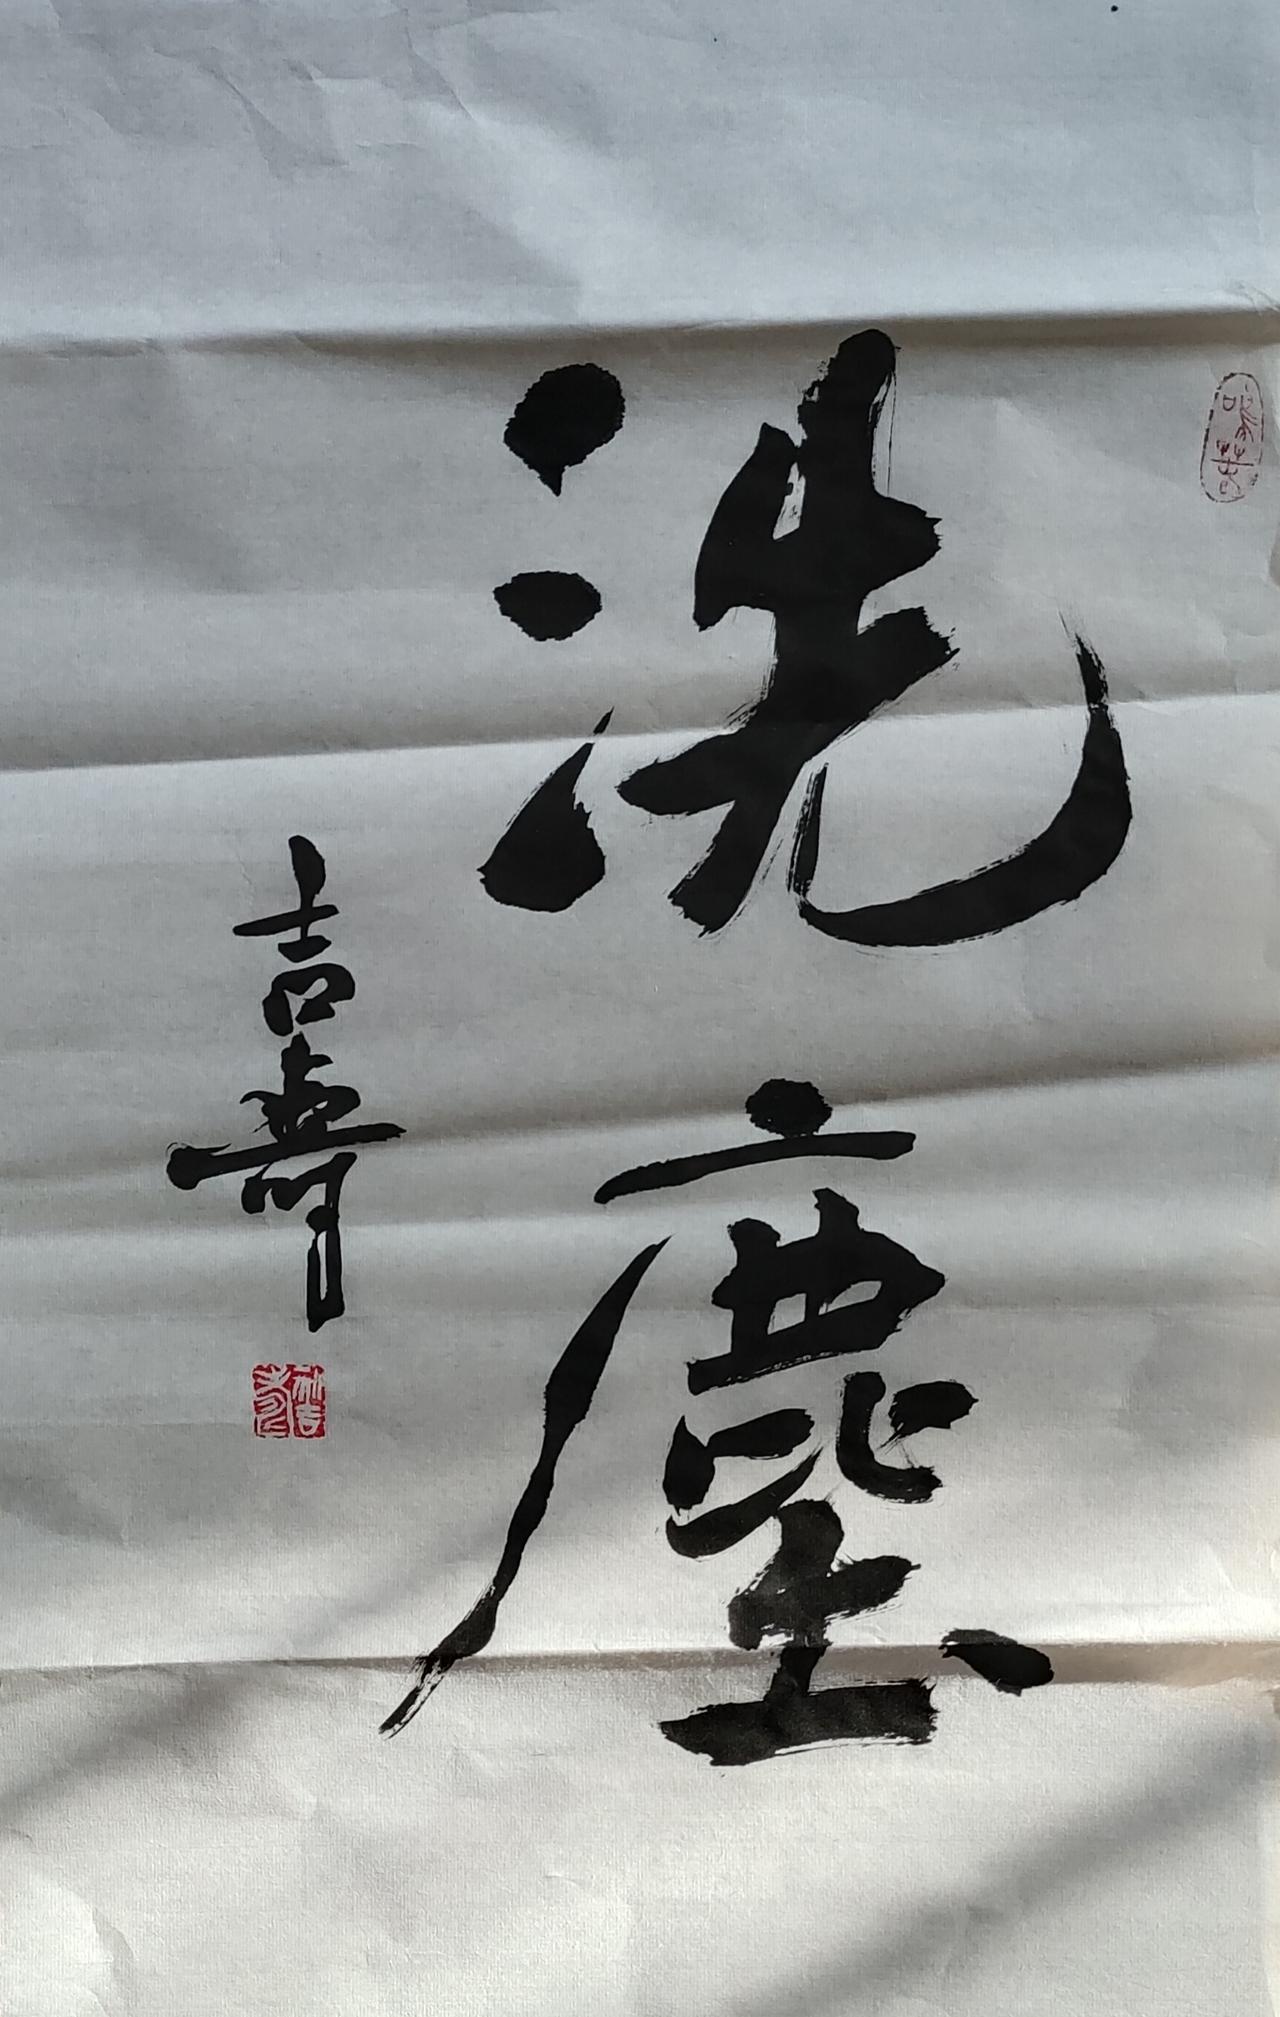 洗塵
吉壽